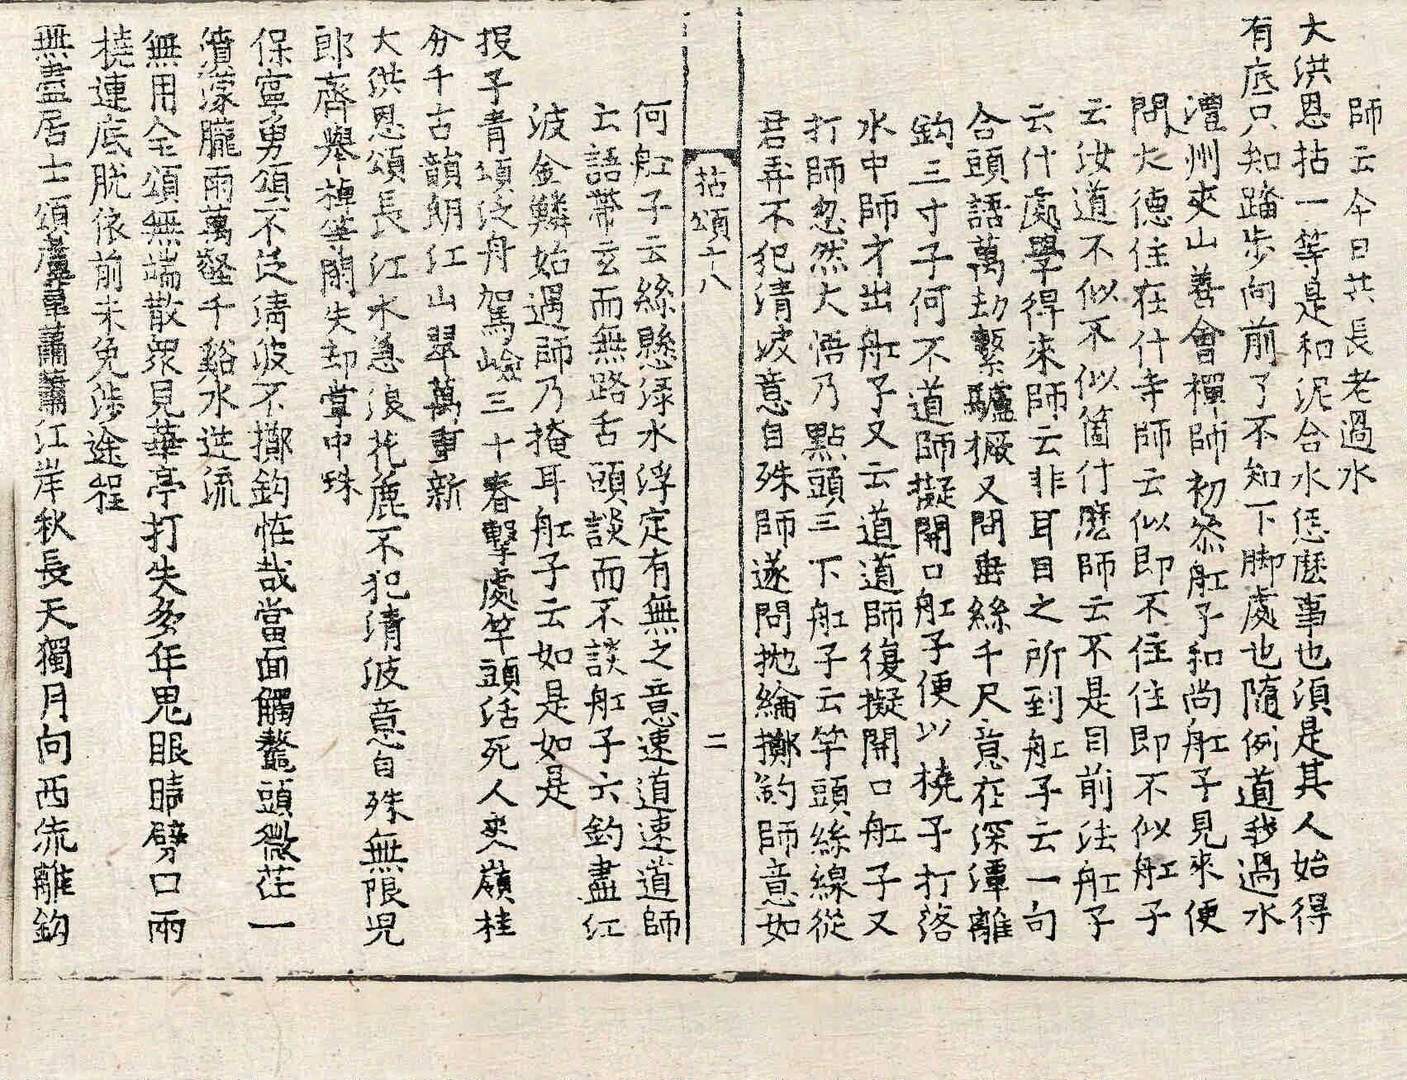 師云今日共長老過水
大洪恩拈一等是和泥合水恁麽事也須是其人始得
有底只知踏步向前了不知下脚處也隨例道我過水
澧州夾山善會禪師初叅舡子和尚舡子見來便
問大德住在什寺師云似即不住住即不似舡子
云汝道不似不似箇什麽師云不是目前法舡子
云什處學得來師云非耳目之所到舡子云一句
合頭語萬劫繫驢橛又問垂絲千尺意在深潭離
鈎三寸子何不道師擬開口舡子便以橈子打落
水中師才出舡子又云道道師復擬開口舡子又
打師忽然大悟乃點頭三下舡子云竿頭絲線從
君弄不犯清波意自殊師遂問拋綸擲釣師意如
拈頌十八 二
何舡子云絲懸淥水浮定有無之意速道速道師
云語帶玄而無路舌頭談而不談舡子云釣盡江
波金鱗始遇師乃掩耳舡子云如是如是
投子青頌泛舟駕險三十春擊處竿頭活死人夾嶺桂
分千古韻朗江山翠萬重新
大洪恩頌長江水急浪花麁不犯清波意自殊無限児
郎齊舉棹等閑失却掌中珠
保寧勇頌不泛淸波不擲鈎恠哉當面觸鼇頭微茫一
濆濛朧雨萬壑千谿水迸流
無用全頌無端散衆見華亭打失多年鬼眼睛劈口兩
橈連底脫依前未免涉途程
無盡居士頌蘆葦蕭蕭江岸秋長天獨月向西流離鈎